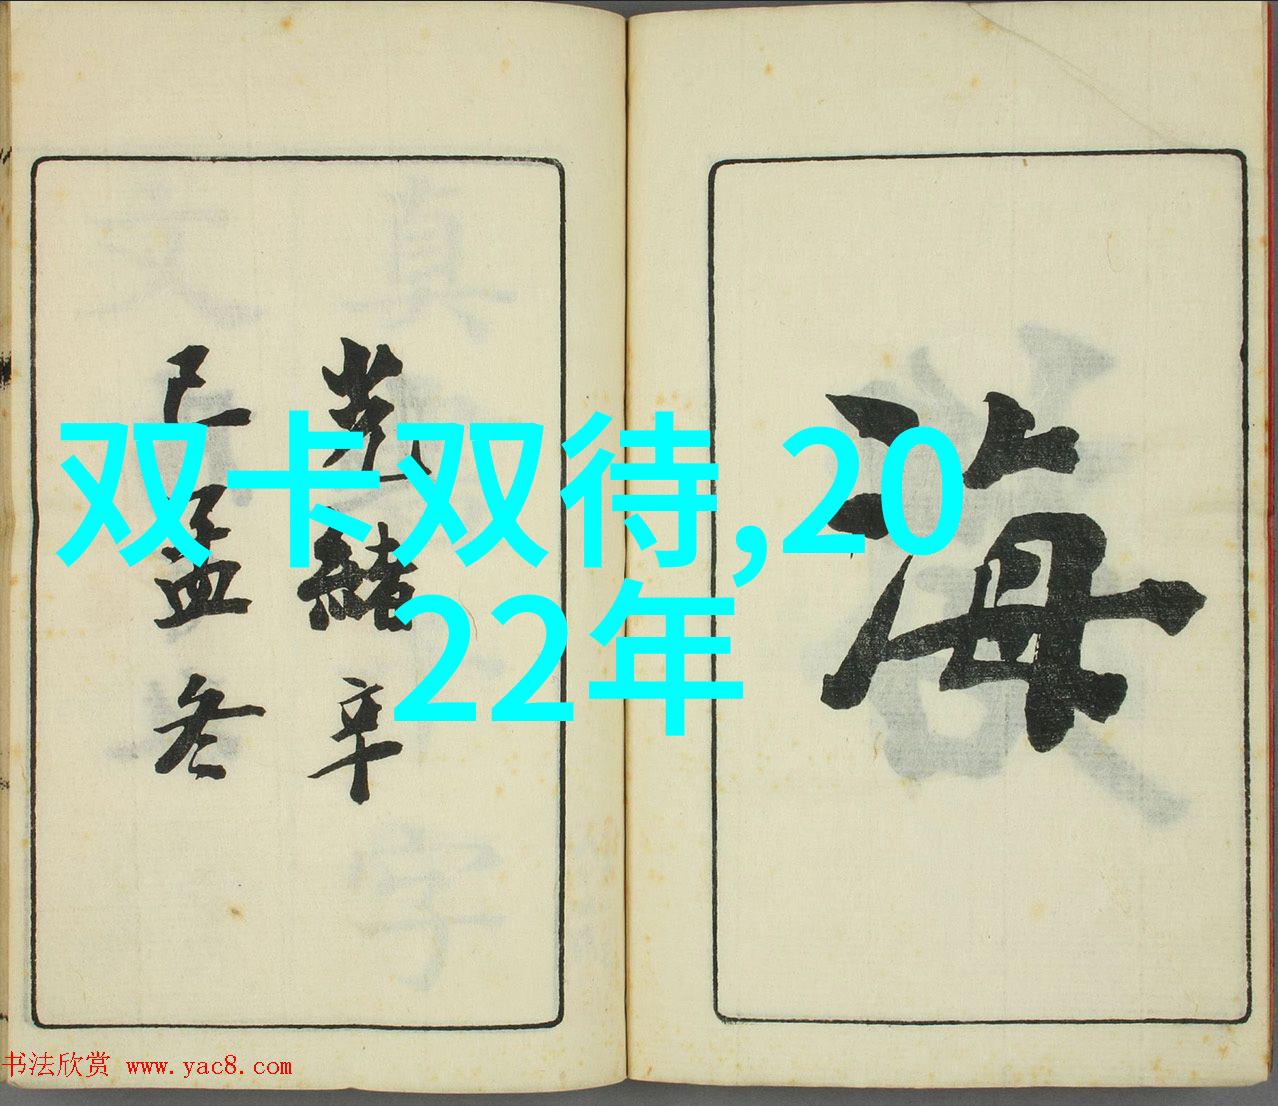 双卡双待,20
22年
海
光緒辛
巳孟冬
书法欣赏 www.yac8.com